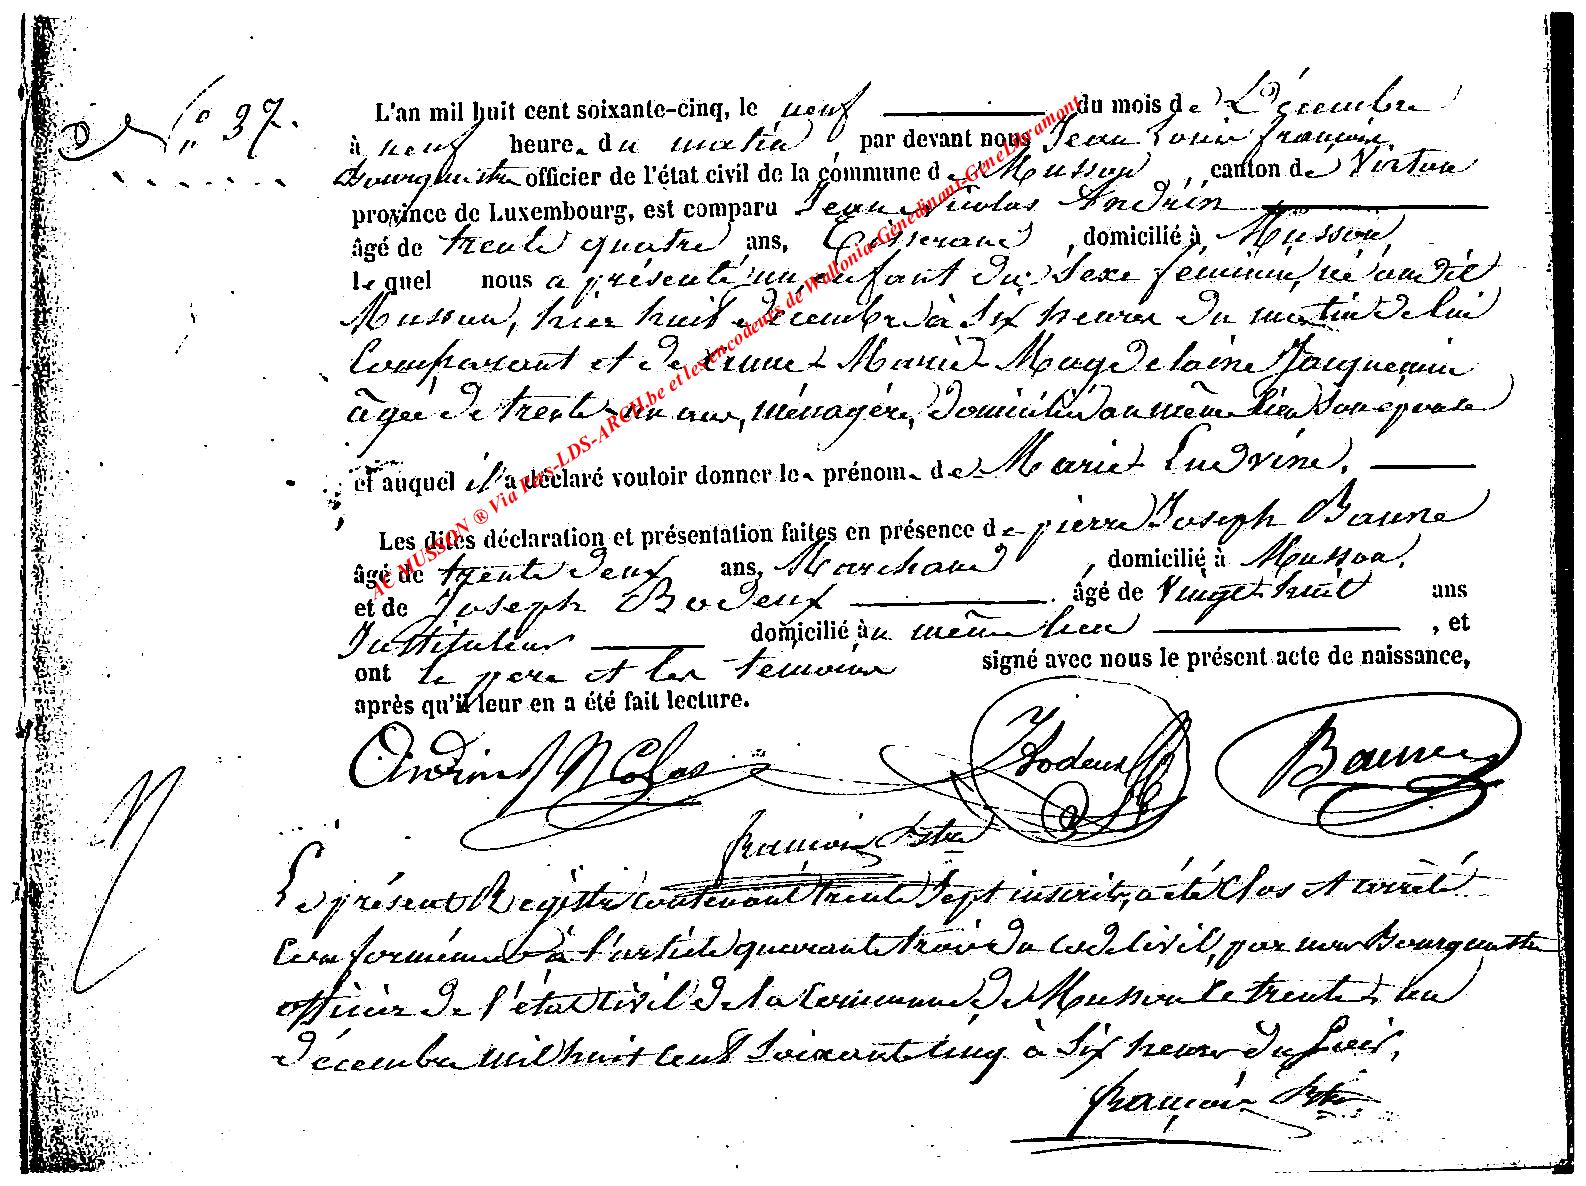 N° 37.
L'an mil huit cent soixante-cinq, le neuf du mois de Décembre
à neuf heure du matin par devant nous Jean Louis françois
Bourgmestre officier de l'état civil de la commune de Musson, canton de Virton
province de Luxembourg, est comparu Jean Nicolas Andrin
âgé de trente quatre ans, Tisserand, domicilié à Musson,
lequel nous a présenté un enfant du sexe féminin, né audit
Musson, hier huit décembre à six heures du matin de lui
Comparant et de Marie Magdelaine Jacquemin
âgée de trente un ans, ménagère, domiciliée au même lieu son épouse
et auquel il a déclaré vouloir donner le prénom de Marie Ludvine.
Les dites déclaration et présentation faites en présence de pierre Joseph Baune
âgé de trente deux ans, Marchand, domicilié à Musson.
et de Joseph Bodeux âgé de Vingt huit ans
Instituteur domicilié au même lieu, et
ont le père et les témoins signé avec nous le présent acte de naissance,
après qu'il leur en a été fait lecture.
Andrin Nicolas JBodeux Baune
françois Bstre
Le présent Registre contenant trente sept inscrits, a été Clos et arrêté
Conformément à l'article quarante trois du code civil, par nous Bourgmestre
officier de l'état civil de la Commune de Musson le trente un
décembre mil huit cent soixante cinq à six heures du soir.
françois Bstre
AC MUSSON ® Via Fons-LDS-ARCH.be et les encodeurs de Wallonia-Genedinant-GeneLibramont